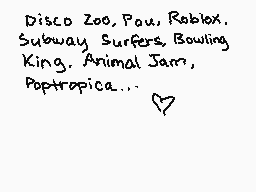 Disco Zoo, Pou, Roblox.
Subway Surfers, Bowling
King. Animal Jam,
Poptropica...